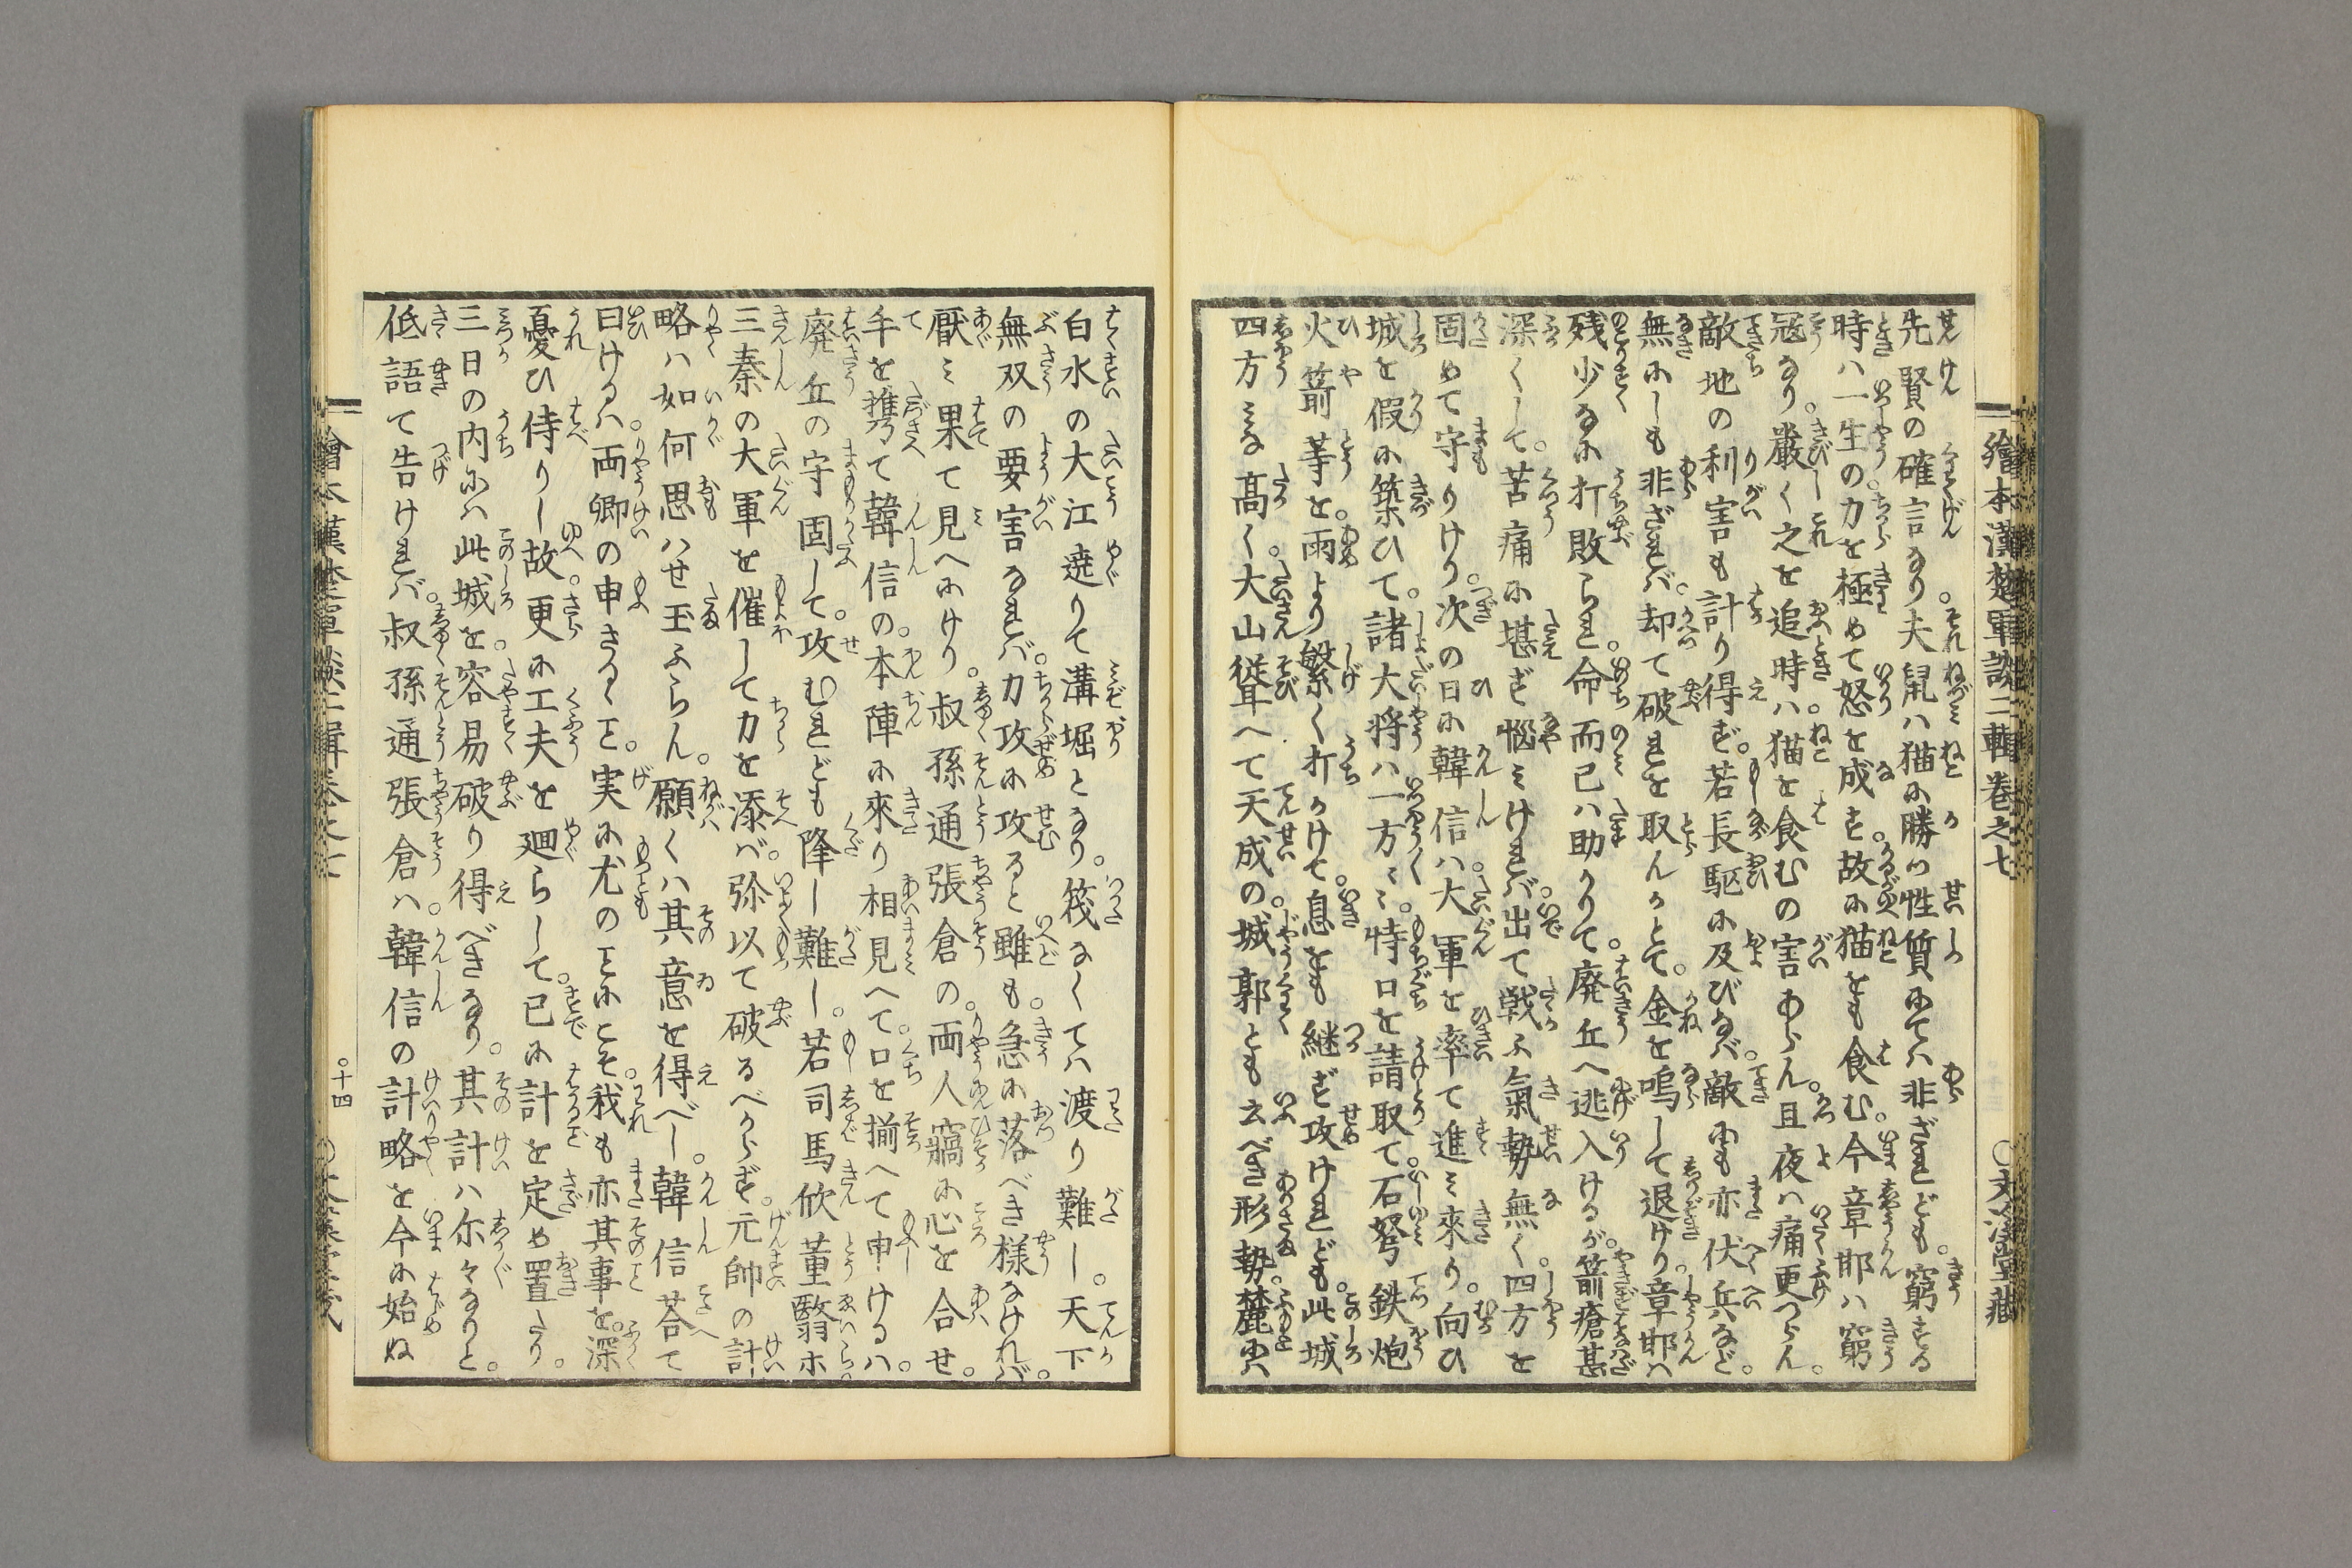 繪本漢楚軍談二輯卷之七
○文溪堂藏
先賢の確言なり夫鼠ハ猫に勝つ性質にてハ非ざれども。窮する
時ハ一生の力を極めて怒を成す。故に猫をも食む。今章邯ハ窮
寇なり。嚴く之を追時ハ。猫を食むの害あらん。且夜ハ痛更つらん。
敵地の利害も計り得ず。若長駆に及びなバ。敵にも亦伏兵など。
無にしも非ざれバ。却て破れを取んかとて。金を鳴して退けり。章邯ハ
残少なに打敗られ。命而已ハ助かりて。廃丘へ逃入けるが。箭瘡甚
深くして。苦痛に堪ず惱ミけれバ。出て戦ふ氣勢無く。四方を
固めて守りけり。次の日に韓信ハ。大軍を率て進ミ來り。向ひ
城を假に築ひて。諸大将ハ一方ミ。持口を請取て。石弩鉄炮
火箭等を。雨より繁く打かけて。息をも継ず攻けれども。此城
四方ミな高く。大山聳へて天成の。城郭とも云べき形勢。麓にハ
白水の大江遶りて溝堀となり。筏なくてハ渡り難し。天下
無双の要害なれバ。力攻に攻ると雖も。急に落べき様なけれバ。
厭ミ果て見へにけり。叔孫通張倉の。両人竊に心を合せ。
手を攜て韓信の。本陣に來り相見へて。口を揃へて申けるハ。
廃丘の守固して。攻むれども降し難し。若司馬欣董翳ホ。
三秦の大軍を催して力を添バ。弥以て破るべからず。元帥の計
略ハ如何思ハせ玉ふらん。願くハ其意を得べし。韓信荅て
曰けるハ。両卿の申さるゝヿ。実に尤のヿにこそ。我も亦其事を。深
憂ひ侍りし故。更に工夫を廻らして。已に計を定め置たり。
三日の内にハ此城を。容易破り得べきなり。其計ハ尓々なりと。
低語て告けれバ。叔孫通張倉ハ。韓信の計略を今に始ぬ
繪本漢楚軍談二輯卷之七
○十四